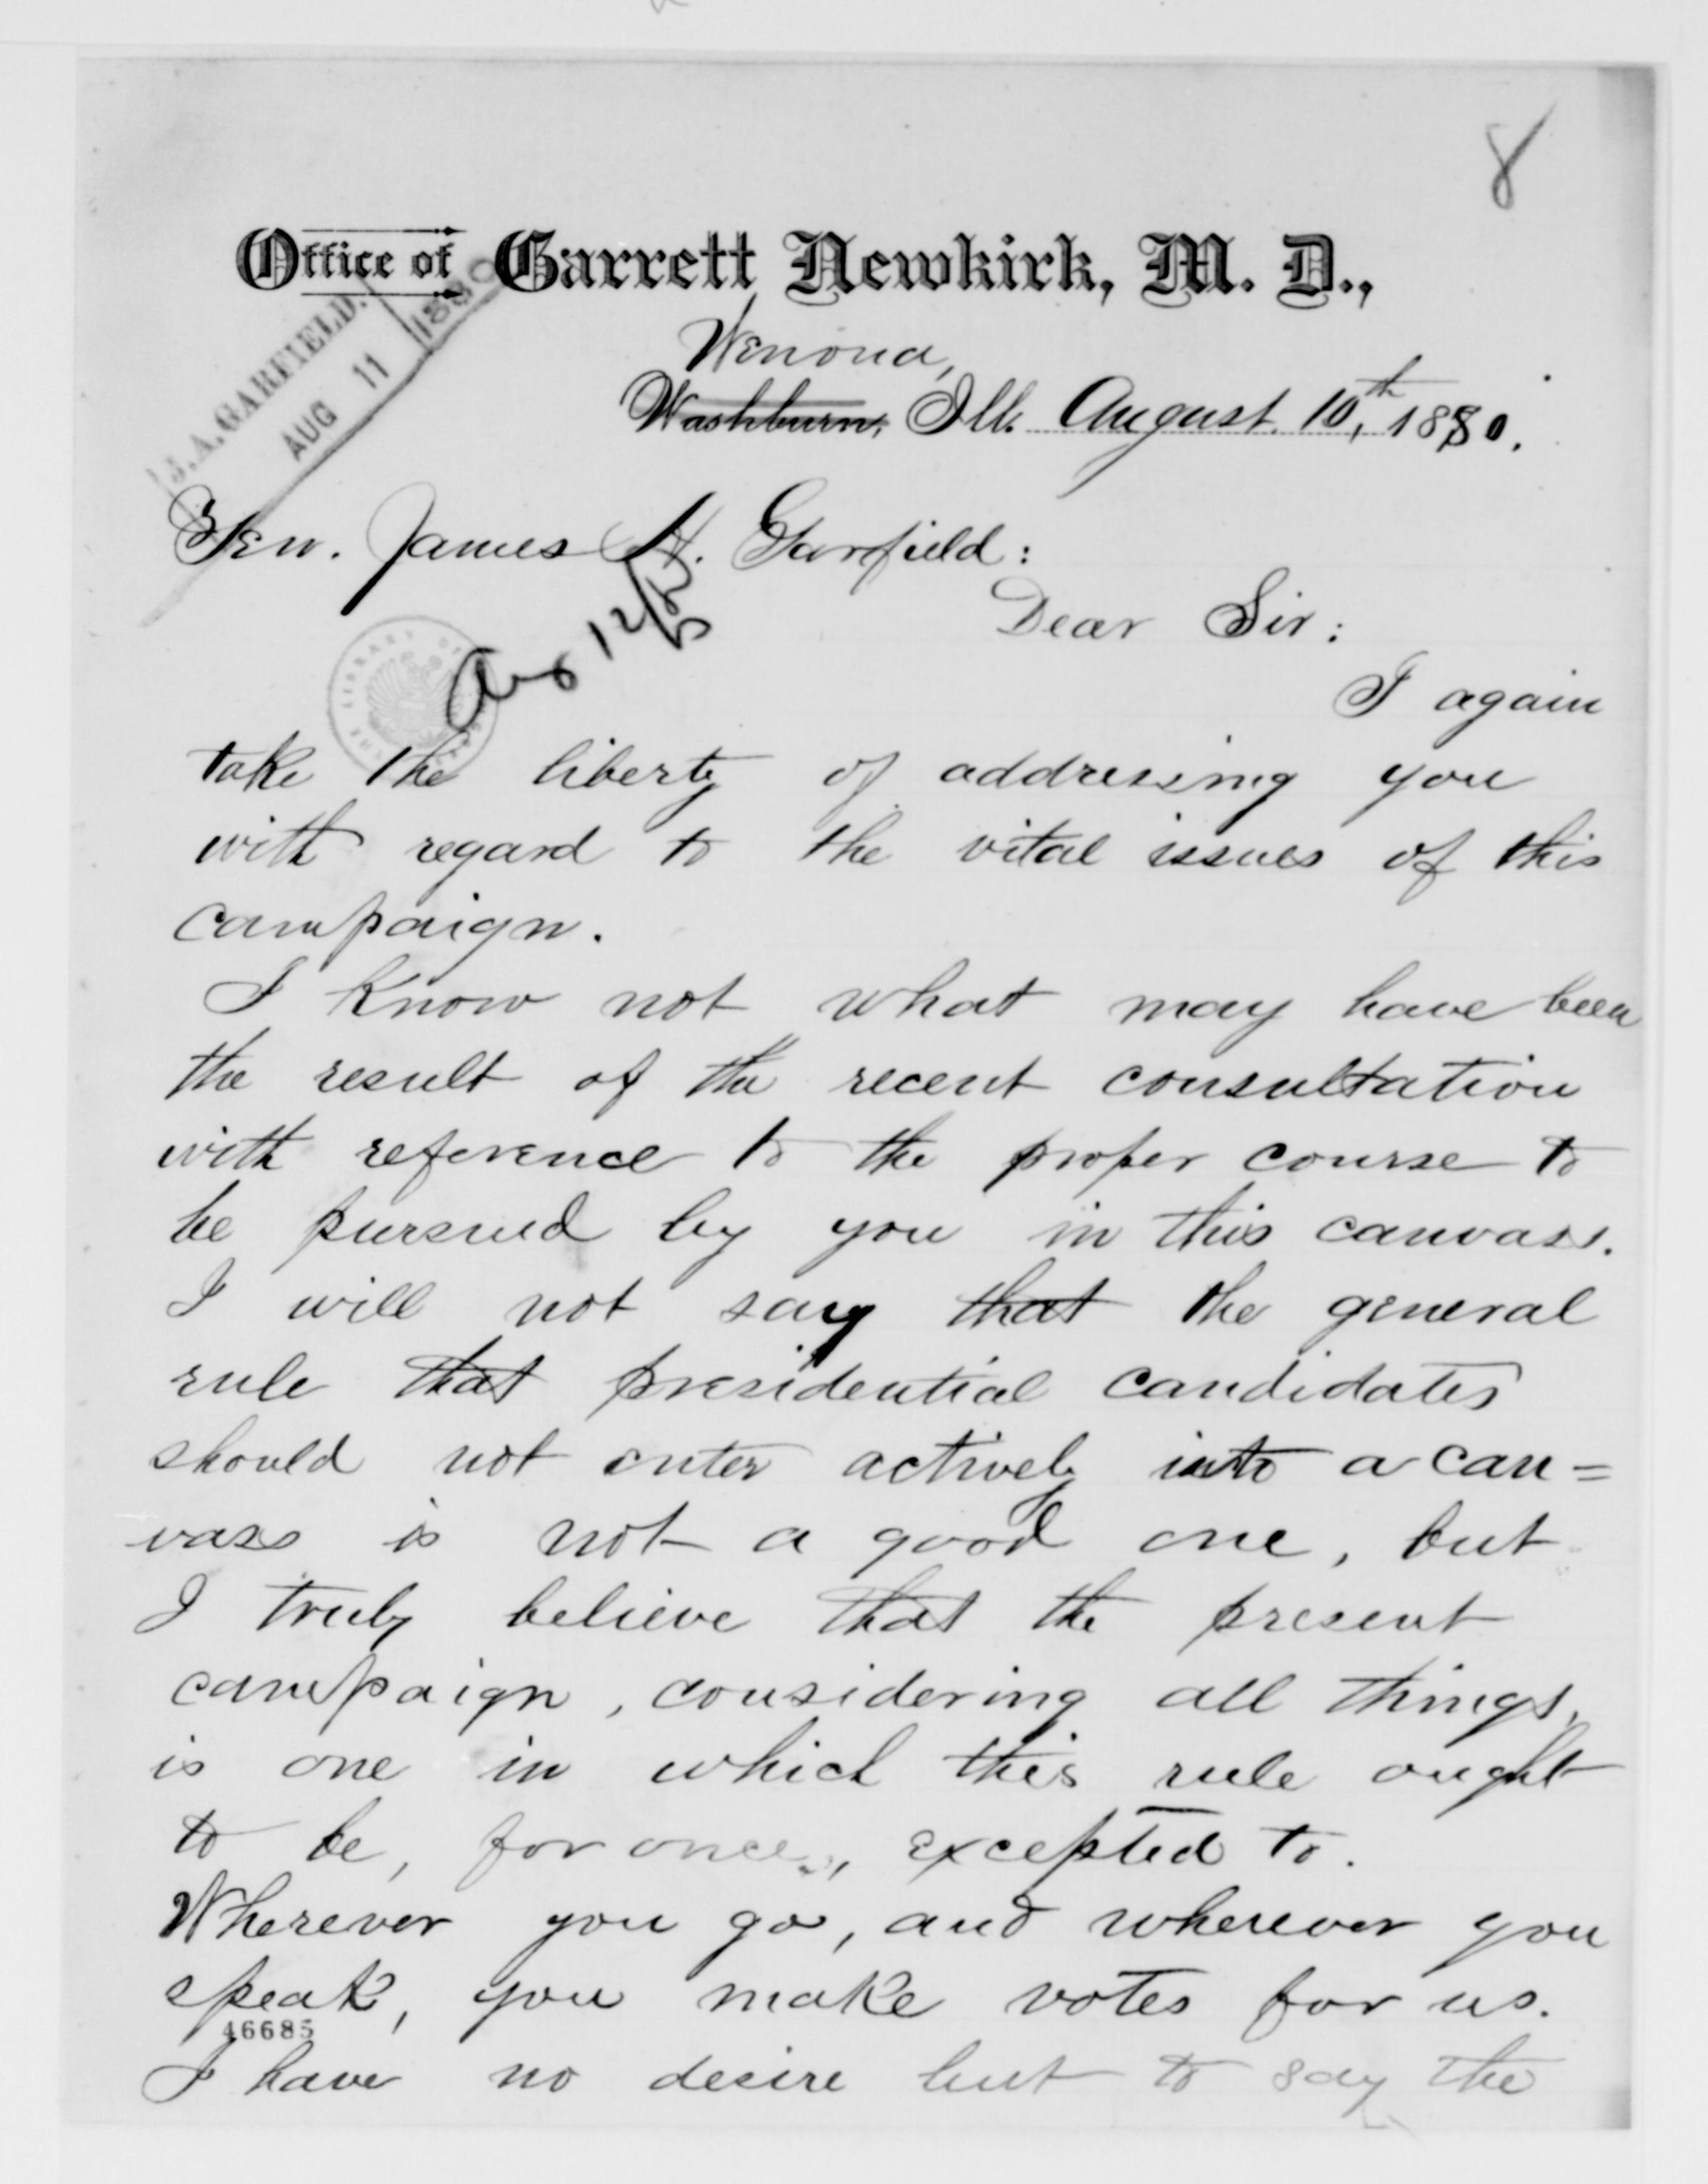 8
Office of Garrett Newkirk, M. D.,
J. A. GARFIELD.
AUG 11
1880
Wenona,
Washburn, Ill. August. 10th, 1880.
Gen. James A. Garfield:
Dear Sir:
I again
take the liberty of addressing you
with regard to the vital issues of this
campaign.
I know not what may have been
the result of the recent consultation
with reference to the proper course to
be pursued by you in this canvass.
I will not say that the general
rule that presidential candidates
should not enter actively into a can=
vass is not a good one, but
I truly believe that the present
campaign, considering all things,
is one in which this rule ought
to be, for once, excepted to.
Wherever you go, and wherever you
speak, you make votes for us.
46685
I have no desire but to say the